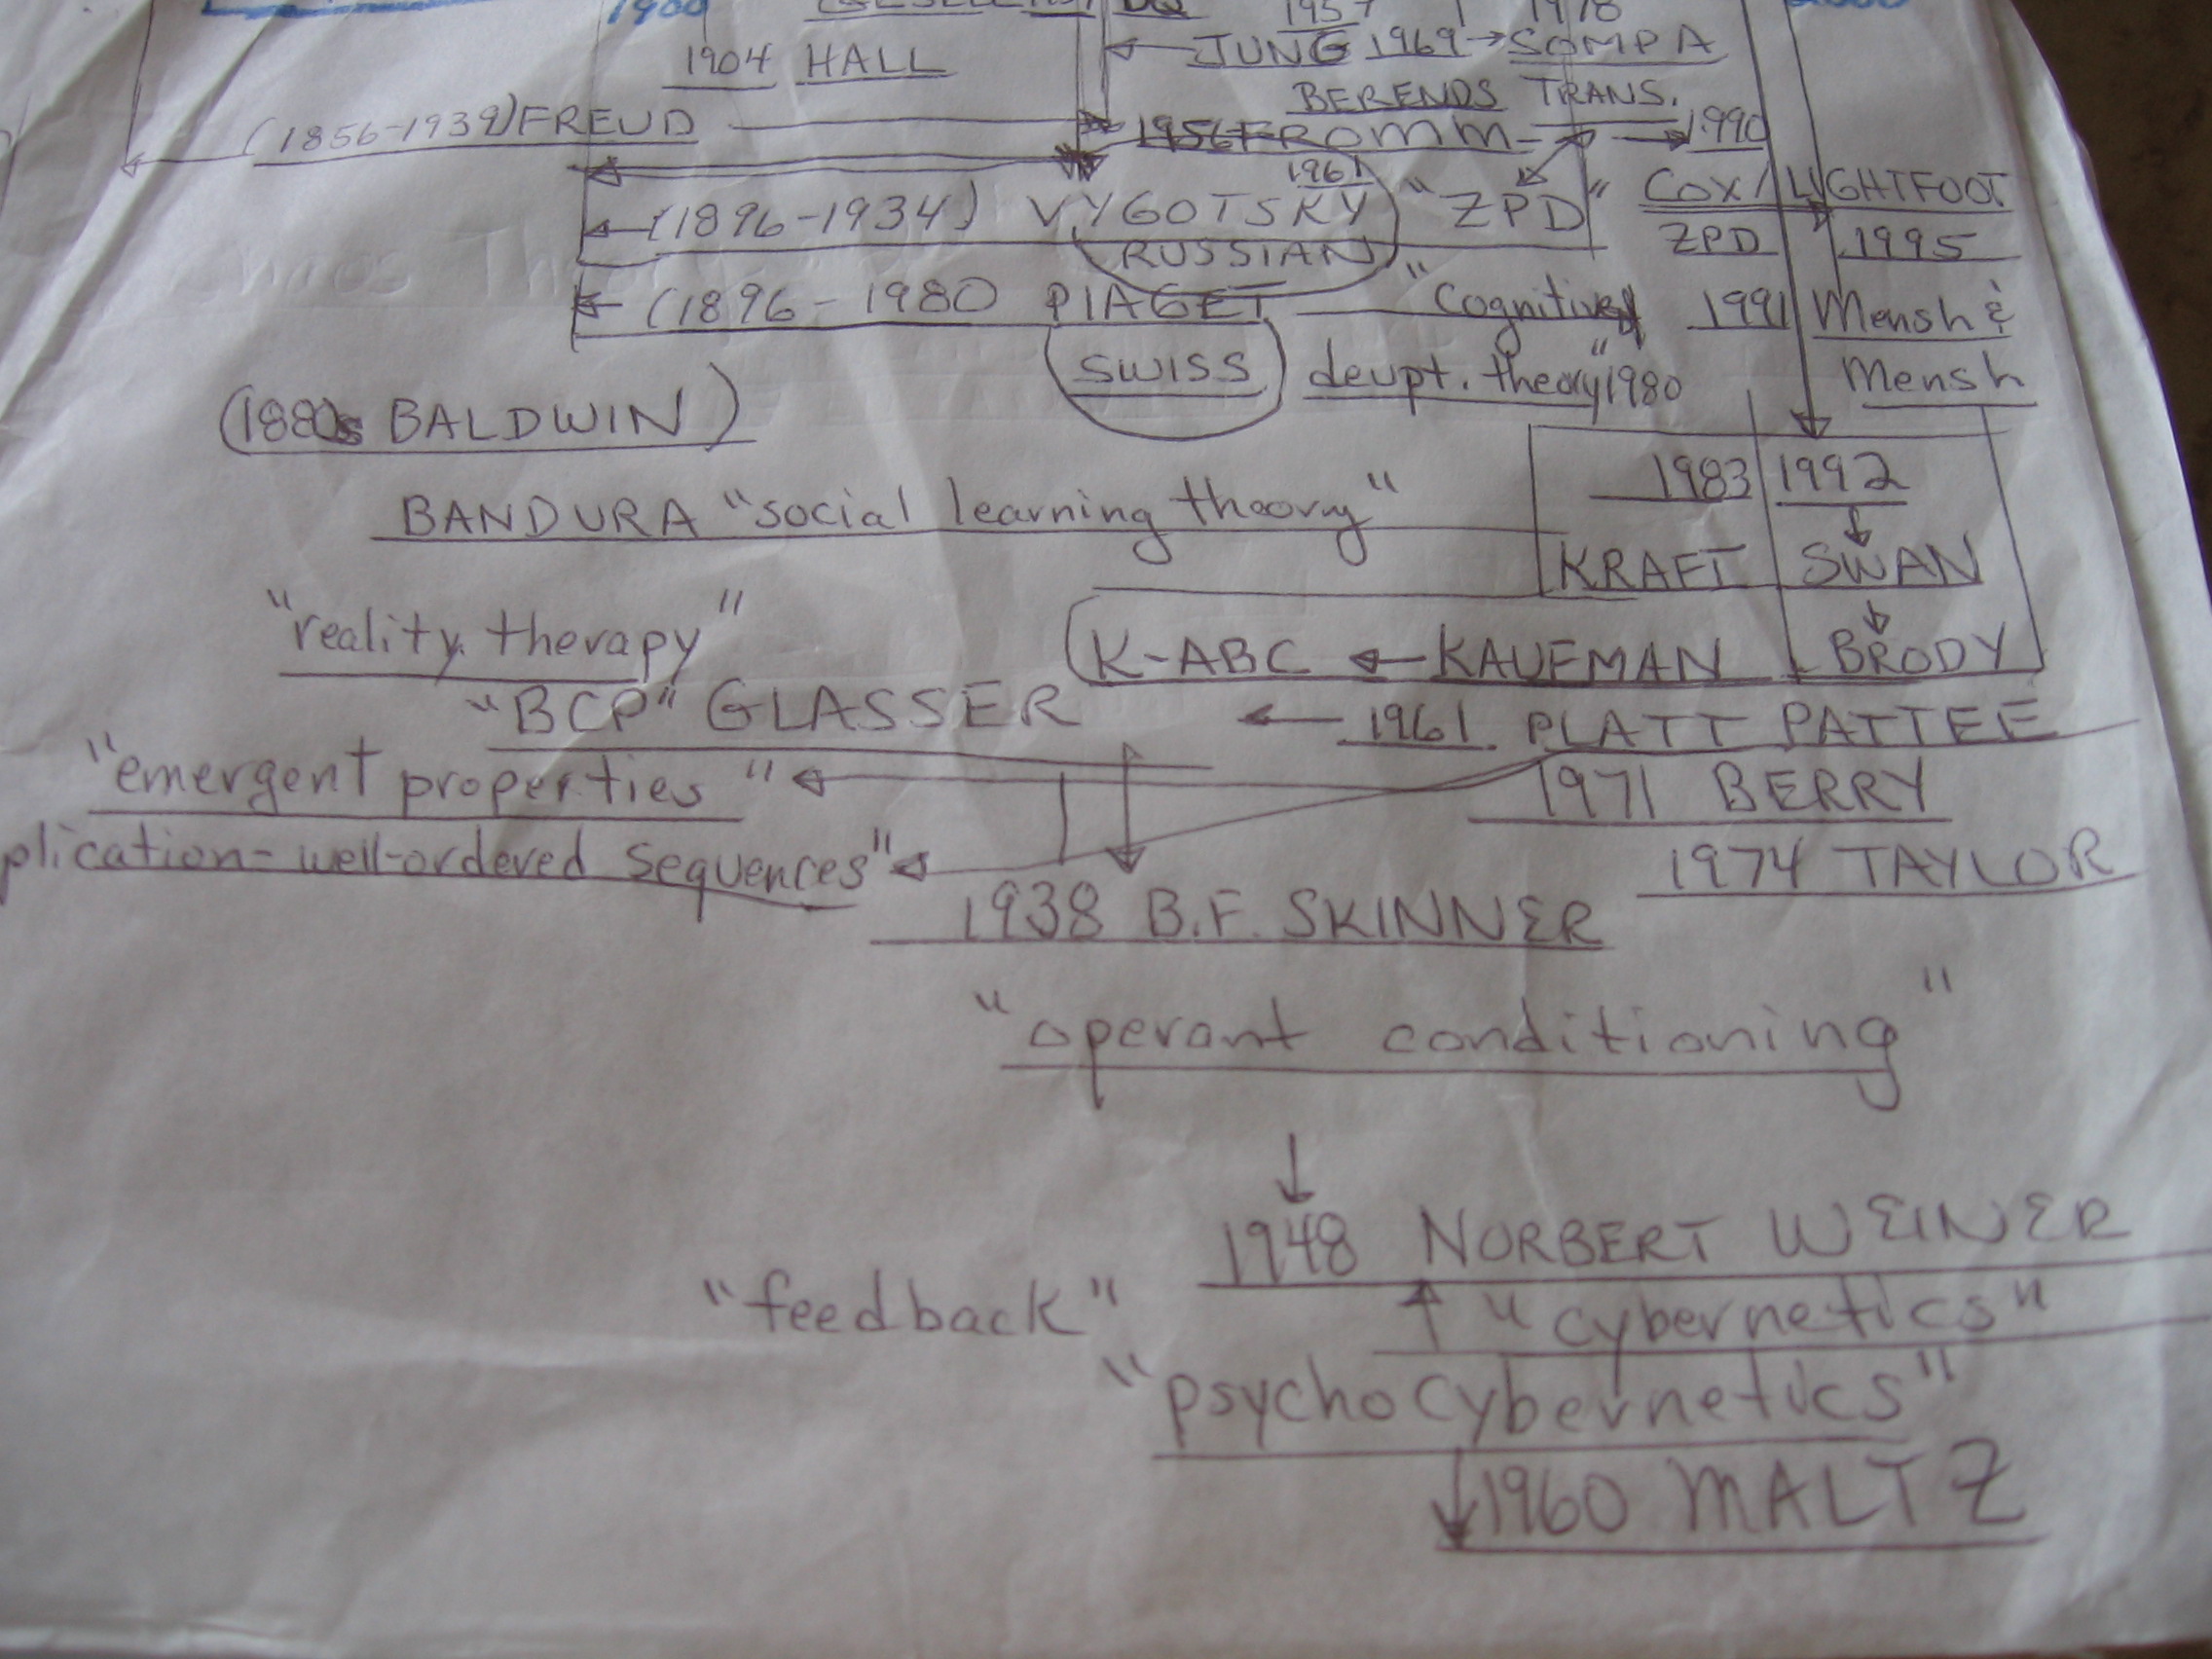 1900
1957 1978
1904 HALL
JUNG 1969 → SOMPA
BERENDS TRANS.
(1856-1939) FREUD
1956 FROMM 1990
1961
(1896-1934) VYGOTSKY "ZPD"
COX/LIGHTFOOT
RUSSIAN
ZPD 1995
(1896 - 1980 PIAGET "Cognitive
1991 Mensh &
Mensh
SWISS devpt. theory" 1980
(1880s BALDWIN)
1983 1992
BANDURA "social learning theory"
KRAFT SWAN
"reality therapy"
K-ABC ← KAUFMAN BRODY
"BCP" GLASSER
← 1961 PLATT PATTEE
"emergent properties"
1971 BERRY
plication-well-ordered sequences"
1974 TAYLOR
1938 B.F. SKINNER
"operant conditioning"
1948 NORBERT WEINER
"feedback"
"cybernetics"
"psychocybernetics"
1960 MALTZ